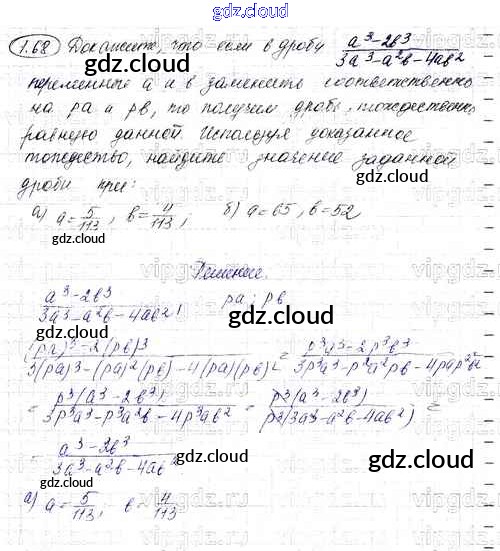 gdz.cloud
1.68 Докажите, что если в дробу (a³-2b³)/(3a³-a²b-4ab²)
переменные a и b заменить соответственно
на pa и pb, то получим дробь, тождественно
равную данной. Используя доказанное
тождество, найдите значение заданной
дроби при:
а) a=5/113, b=4/113; б) a=65, b=52
Решение.
(a³-2b³)/(3a³-a²b-4ab²); pa; pb
((pa)³-2(pb)³)/(3(pa)³-(pa)²(pb)-4(pa)(pb)²) = (p³a³-2p³b³)/(3p³a³-p²a²pb-4pap²b²)
= (p³(a³-2b³))/(3p³a³-p³a²b-4p³ab²) = (p³(a³-2b³))/(p³(3a³-a²b-4ab²)) =
= (a³-2b³)/(3a³-a²b-4ab²)
а) a=5/113, b=4/113